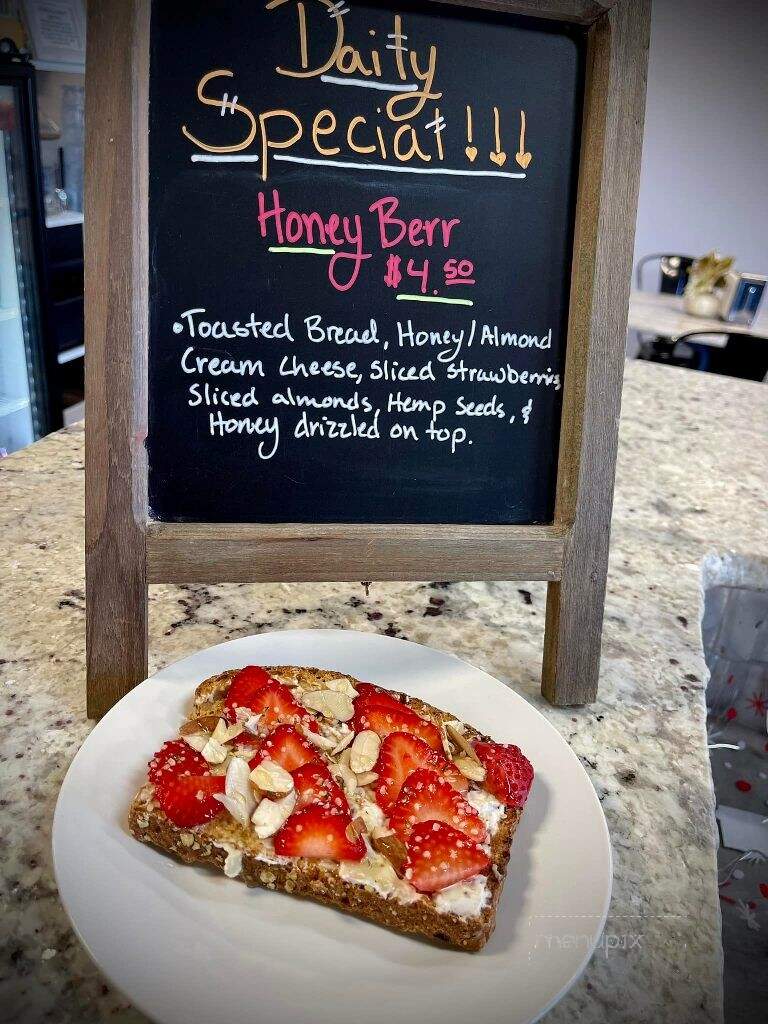 Daily
Special!!!
Honey Berr
$4.50
•Toasted Bread, Honey/Almond
Cream Cheese, Sliced Strawberries,
Sliced almonds, Hemp Seeds, &
Honey drizzled on top.
menupix